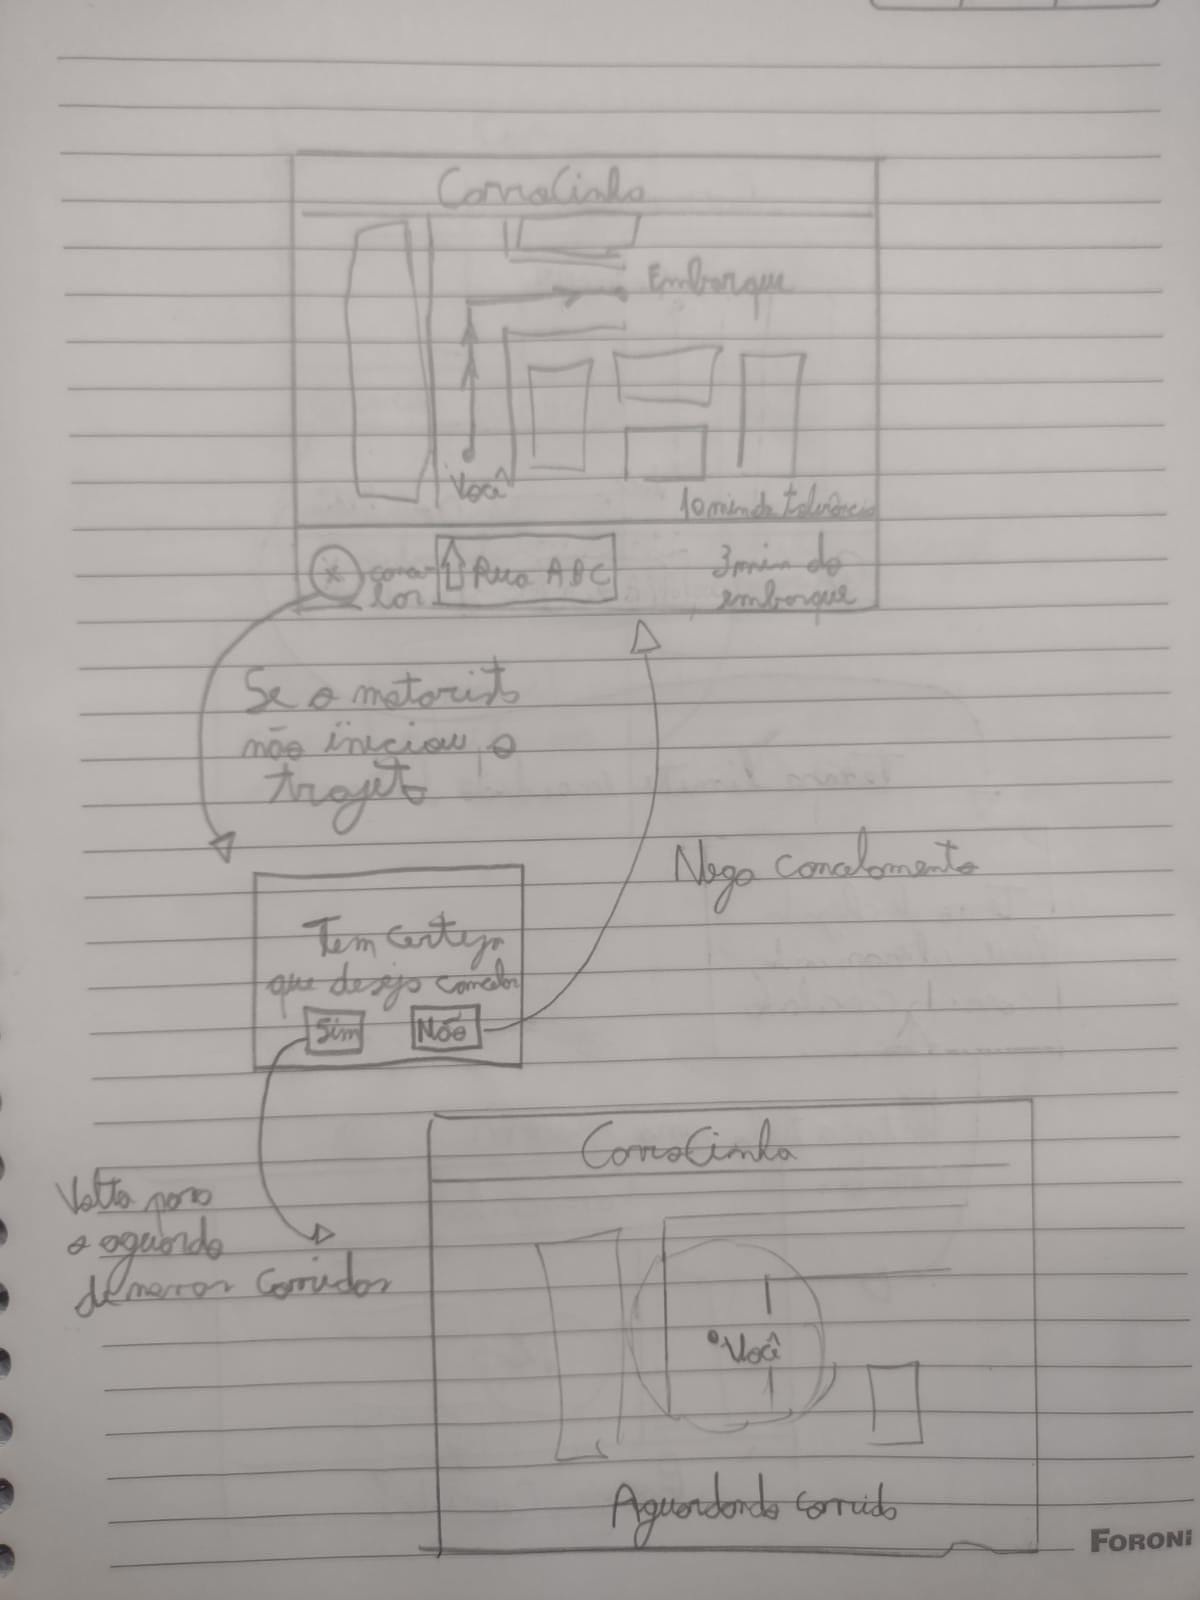 CorroCinha
Embarque
Você
10 min de tolerância
x cance-
lar
Rua ABC
3 min do
embarque
Se o motorista
não iniciou o
trajeto
Nega cancelamento
Tem certeza
que deseja cancelar
Sim Não
CorroCinha
Volta para
o aguardo
de novas corridas
Você
Aguardando corrida
FORONI